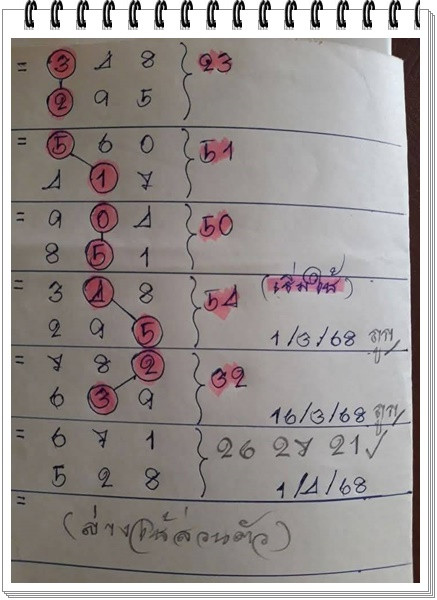 = 3 4 8 } 23
2 9 5
= 5 6 0 } 51
4 1 7
= 9 0 4 } 50
8 5 1
= 3 4 8 } 54 (เริ่มใช้)
2 9 5 1/3/68 ถูก
= 7 8 2 } 32
6 3 9 16/3/68 ถูก
= 6 7 1 } 26 27 21 ✓
5 2 8 1/4/68
=
(ส่วนตัว)